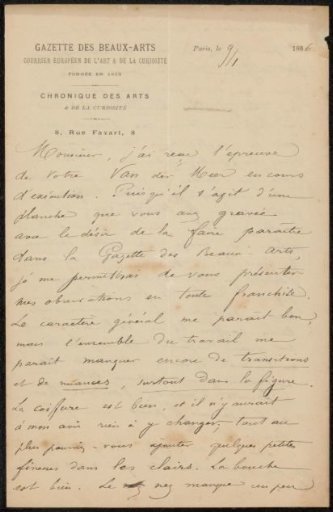 GAZETTE DES BEAUX-ARTS
COURRIER EUROPÉEN DE L'ART & DE LA CURIOSITÉ
FONDÉE EN 1859
CHRONIQUE DES ARTS
& DE LA CURIOSITÉ
8, Rue Favart, 8
Paris, le 9/1 1886
Monsieur, j'ai reçu l'épreuve
de votre Van der Meer en cours
d'exécution. Puisqu'il s'agit d'une
planche que vous avez gravée
avec le désir de la faire paraître
dans la Gazette des Beaux Arts,
je me permettrai de vous présenter
mes observations en toute franchise.
Le caractère général me paraît bon,
mais l'ensemble du travail me
paraît manquer encore de transitions
et de nuances, surtout dans la figure.
La coiffure est bien, et il n'y aurait
à mon avis rien à y changer, tout au
plus pourriez-vous ajouter quelques petites
finesses dans les clairs. La bouche
est bien. Le nez manque un peu